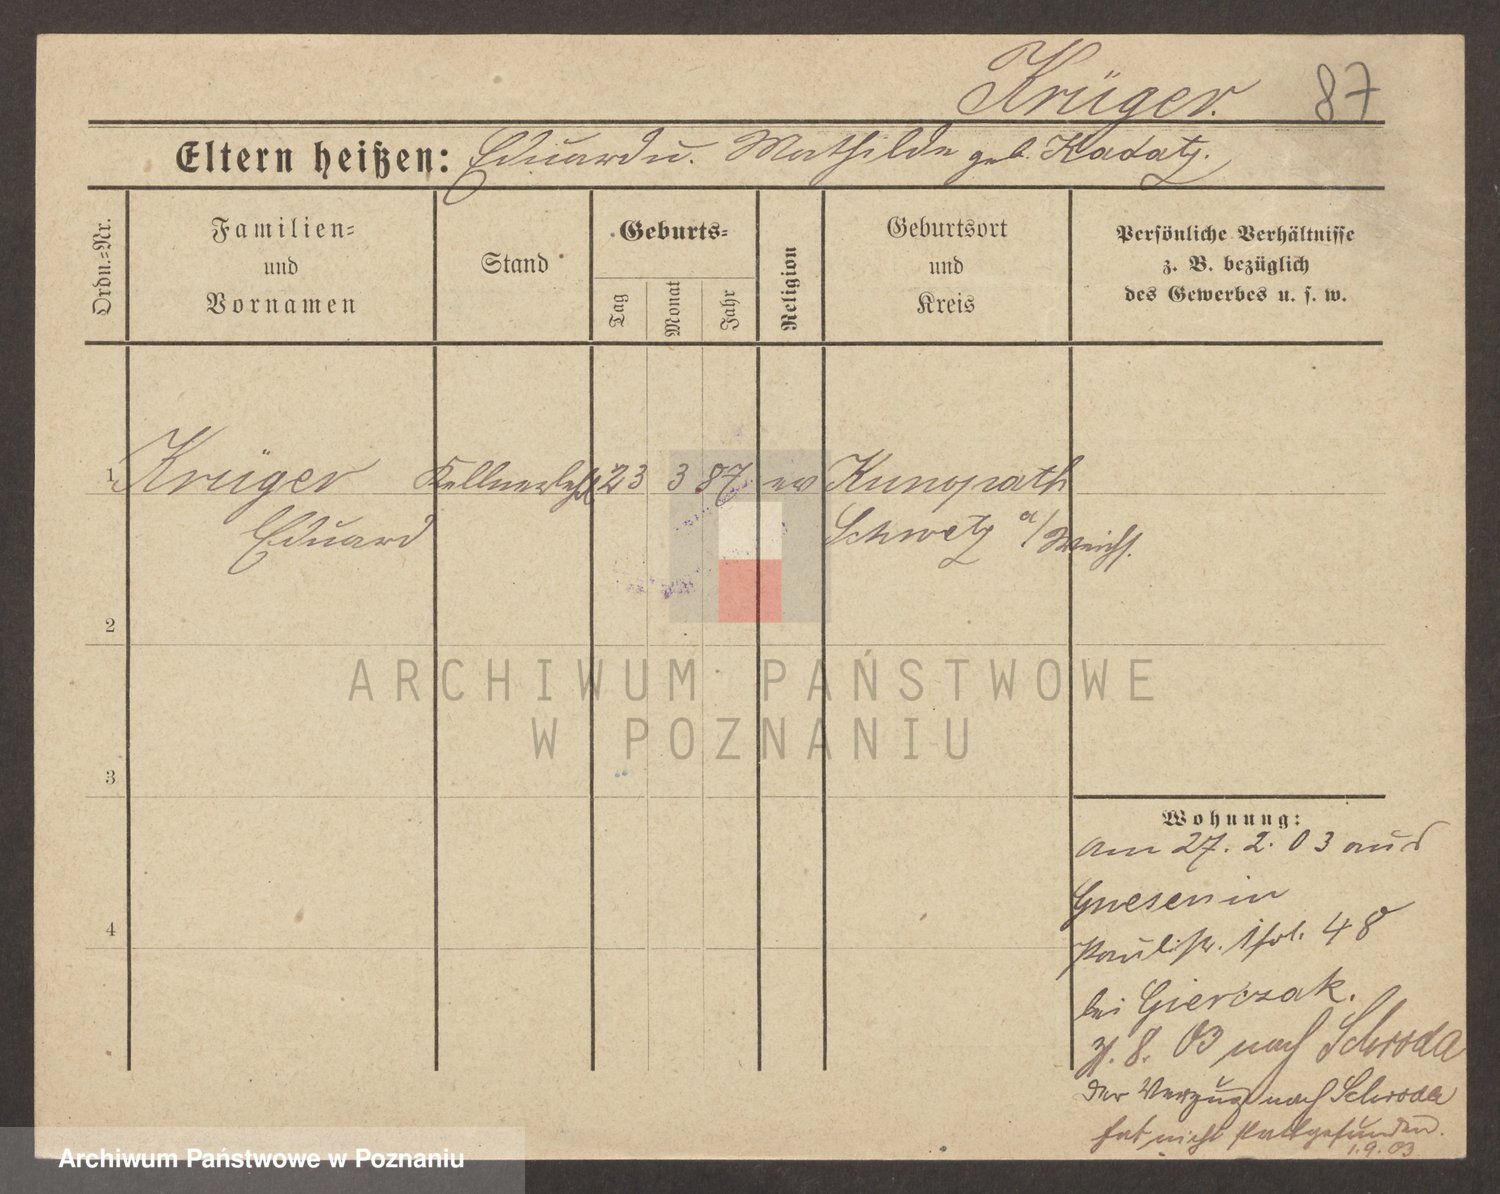 Krüger. 87
Eltern heißen: Eduard u. Mathilde geb. Kadatz.
Ordn.=Nr.
Familien=
und
Vornamen
Stand
Geburts=
Tag
Monat
Jahr
Religion
Geburtsort
und
Kreis
Persönliche Verhältnisse
z. B. bezüglich
des Gewerbes u. s. w.
1 Krüger Kellnerlehrl 23 3 87 ev Kunoprath
Eduard Schwetz a/Weichs.
2
ARCHIWUM PAŃSTWOWE
W POZNANIU
3
Wohnung:
am 27. 2. 03 aus
Gnesen in
Paulistr. 48
bei Gierczak.
8. 03 nach Schroda
Der Verzug nach Schroda
hat nicht stattgefunden.
1.9.03
4
Archiwum Państwowe w Poznaniu